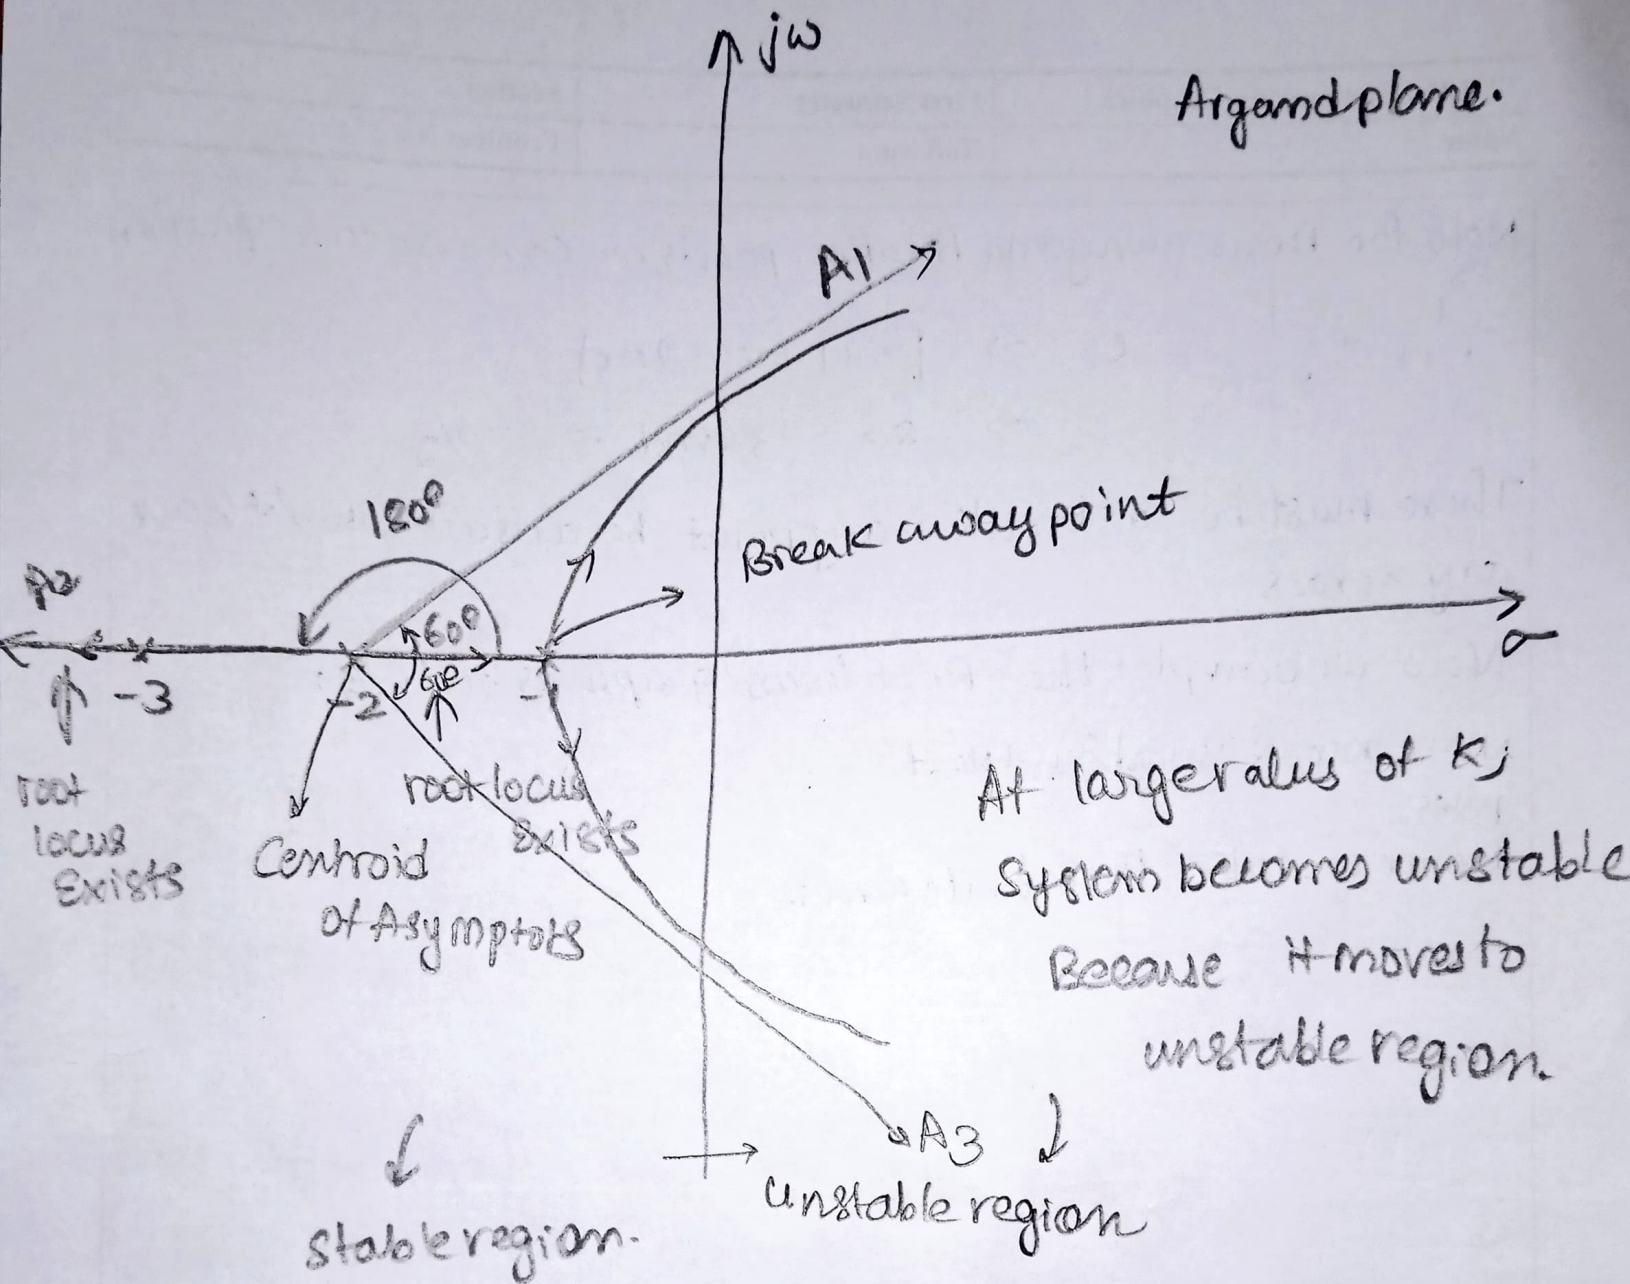 jω
Argand plane.
A1
180°
Break away point
60°
σ
-3
-2
60°
-1
root
locus
Exists
root locus
Exists
Centroid
of Asymptots
At large values of K;
System becomes unstable
Because it moves to
unstable region.
A3
unstable region
stable region.